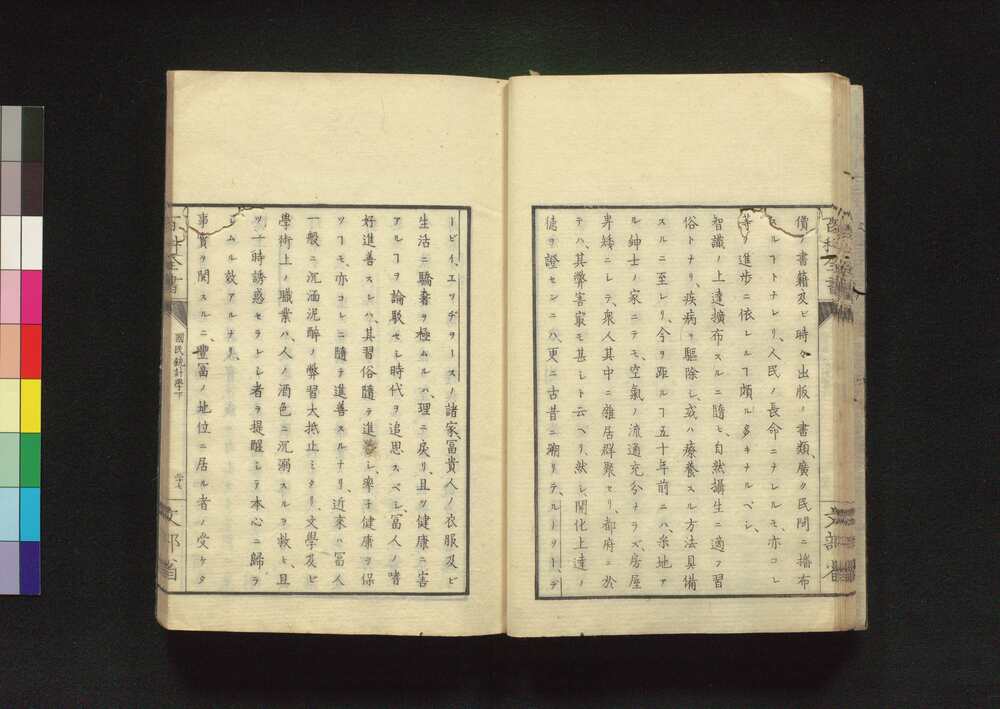 價ノ書籍及ビ時々出版ノ書類、廣ク民間ニ播布
スルヿトナレリ、人民ノ長命ニナレルモ、亦コレ
等ノ進歩ニ依レルヿ頗ル多キナルベシ、
智識ノ上達擴布スルニ隨ヒ、自然攝生ニ適フ習
俗トナリ、疾病ヲ驅除シ、或ハ療養スル方法具備
スルニ至レリ、今ヲ距ルヿ五十年前ニハ、采地ア
ル紳士ノ家ニテモ、空氣ノ流通充分ナラズ、房屋
卑矮ニシテ、衆人其中ニ雜居群聚セリ、都府ニ於
テハ、其弊害㝡モ甚シト云ヘリ、然レ𪜈開化上達ノ
德ヲ證センニハ、更ニ古昔ニ溯リテ、ルートリーデ
ービイ、エツヂヲースノ諸家、冨貴人ノ衣服及ビ
生活ニ驕奢ヲ極ムルハ、理ニ戻リ、且ツ健康ニ害
アルヿヲ論駁セシ時代ヲ追思スベシ、冨人ノ嗜
好進善スレハ、其習俗隨テ進 シ、率子健康ヲ保
ツヿモ、亦コレニ隨テ進善スルナリ、近來ハ冨人
一般ニ、沉湎泥醉ノ弊習大抵止ミタリ、文學及ビ
學術上ノ職業ハ、人ノ酒色ニ沉溺スルヲ救ヒ、且
ツ一時誘惑セラレシ者ヲ提醒シテ本心ニ歸ラ
シムル效アルナリ、
事實ヲ閲スルニ、豐冨ノ地位ニ居ル者ノ受ケタ
百科全書
國民統計學下
文部省